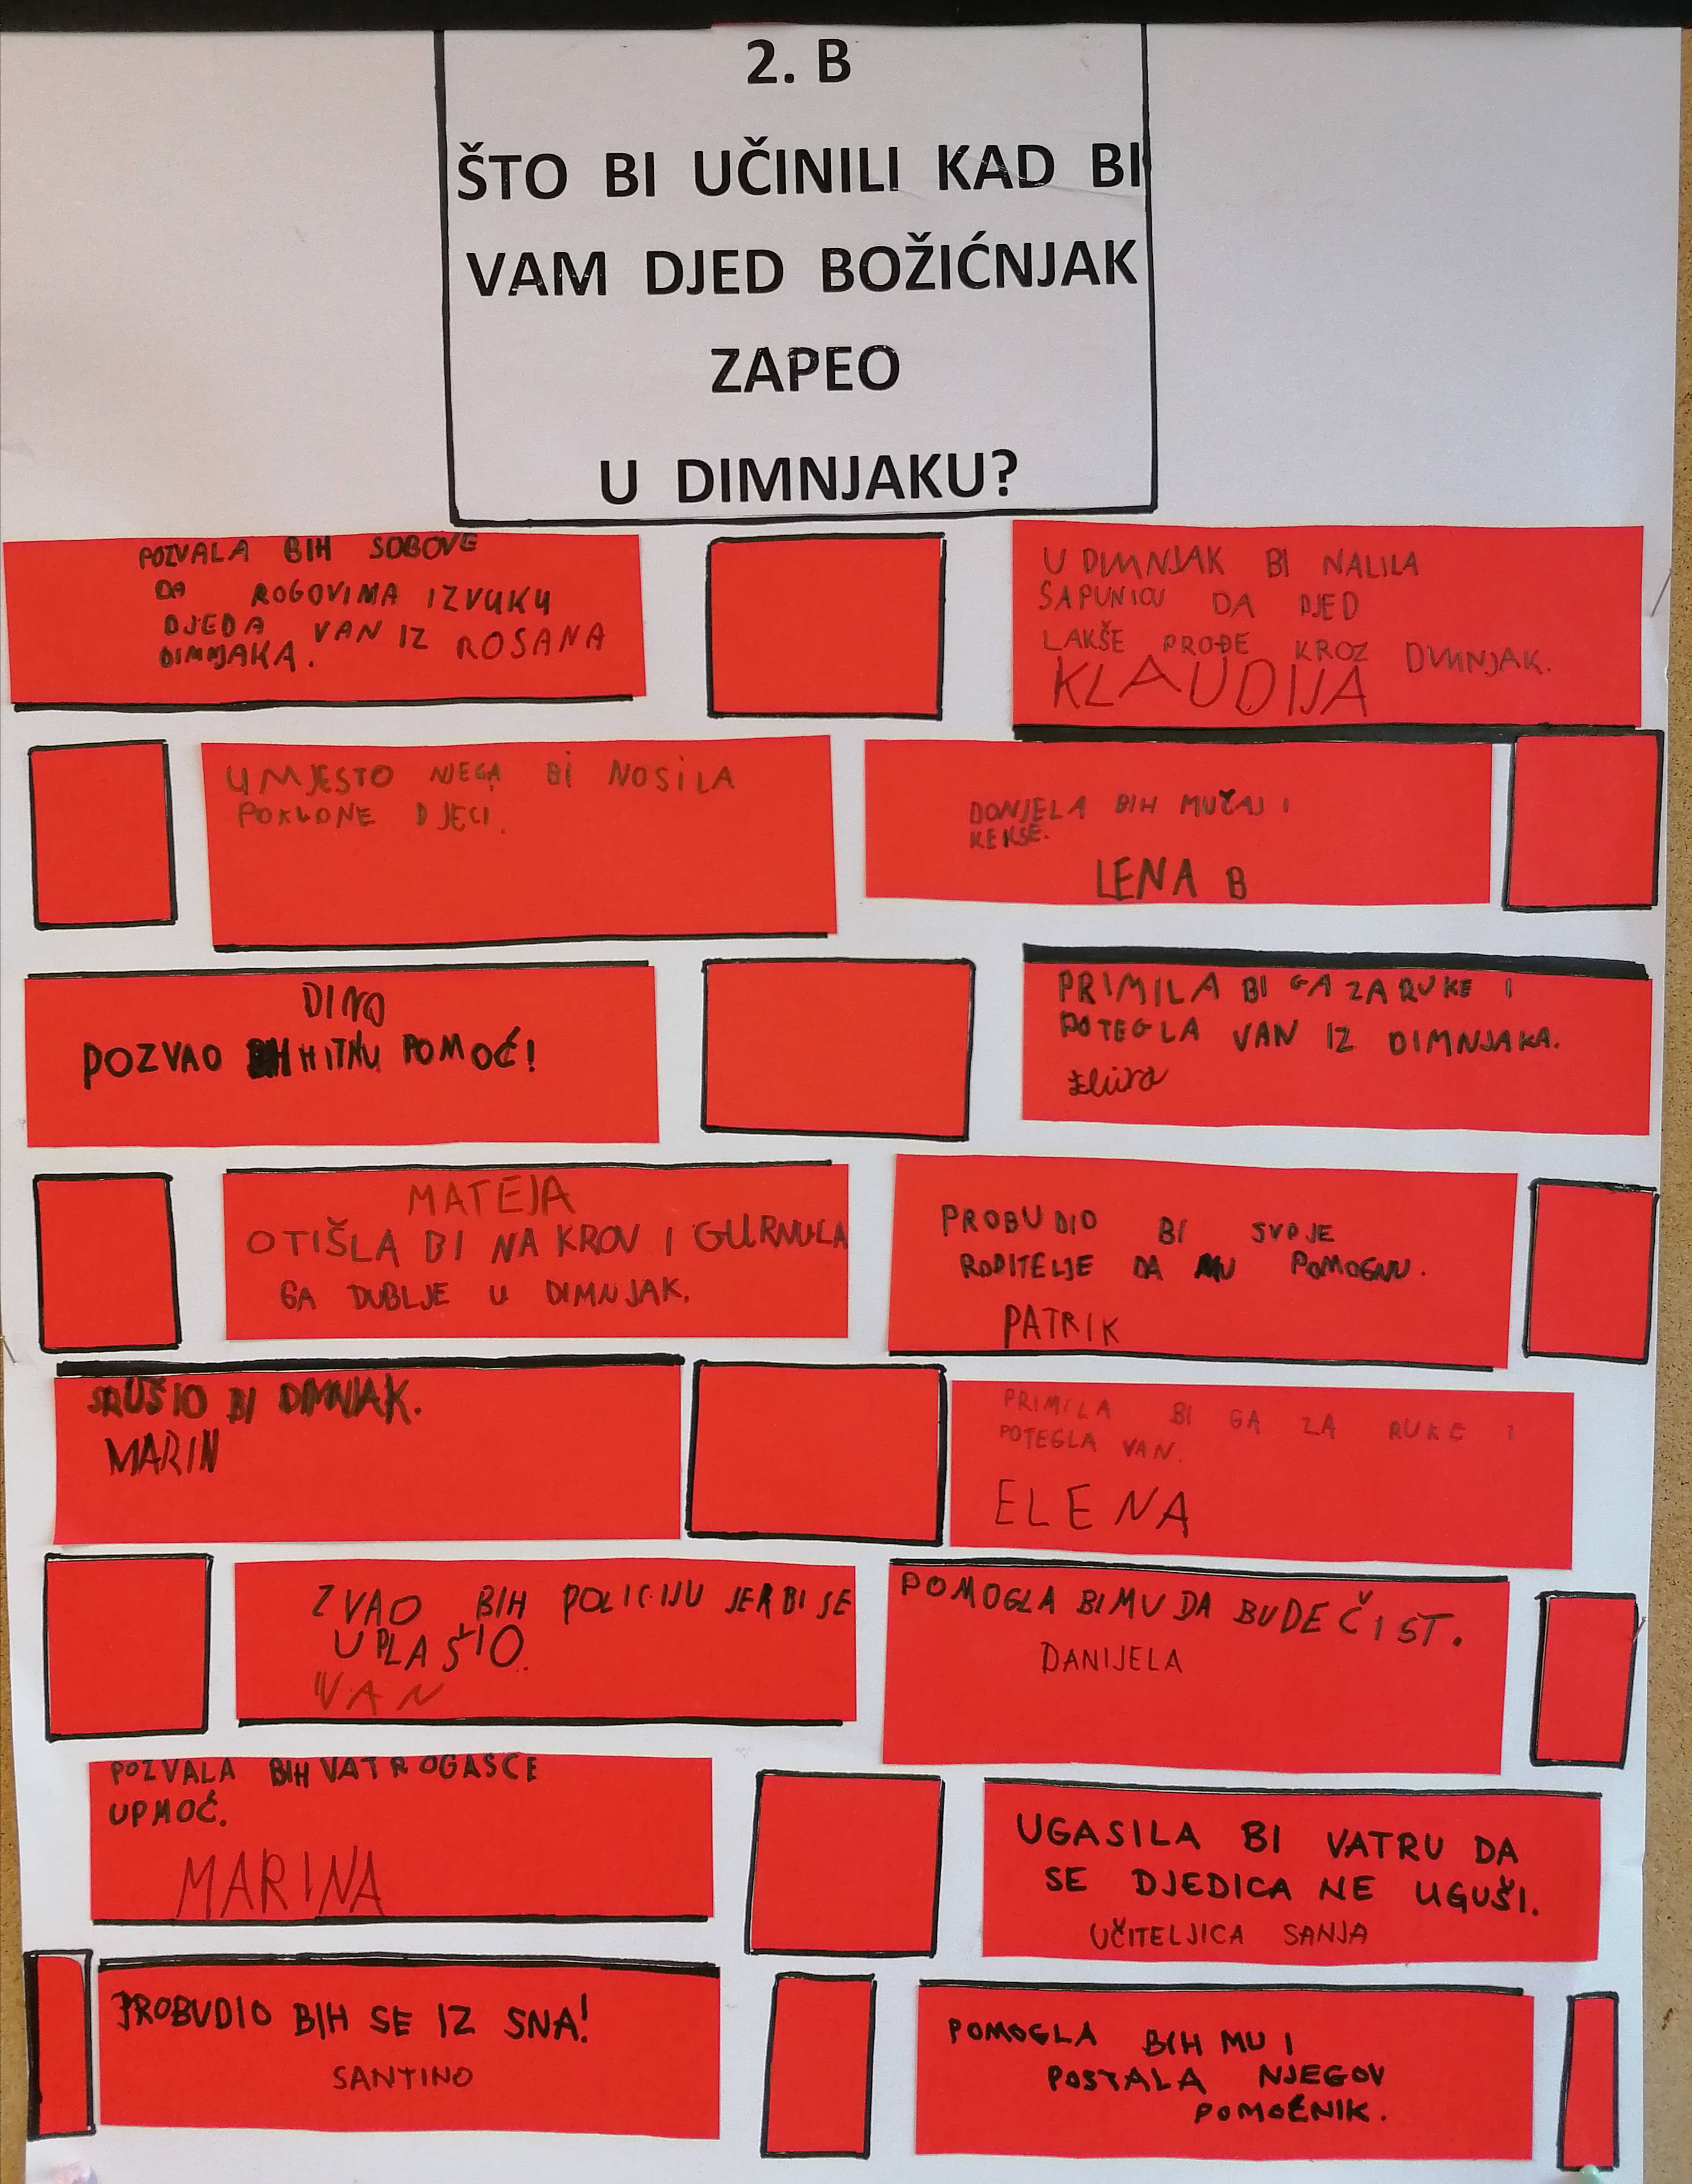 2. B
ŠTO BI UČINILI KAD BI
VAM DJED BOŽIĆNJAK
ZAPEO
U DIMNJAKU?
POZVALA BIH SOBOVE
DA ROGOVIMA IZVUKU
DJEDA VAN IZ ROSANA
DIMNJAKA.
U DIMNJAK BI NALILA
SAPUNICU DA DJED
LAKŠE PROĐE KROZ DIMNJAK.
KLAUDIJA
UMJESTO NJEGA BI NOSILA
POKLONE DJECI.
DONJELA BIH MU ČAJ I
KEKSE.
LENA B
DINO
POZVAO BIH HITNU POMOĆ!
PRIMILA BI GA ZA RUKE I
POTEGLA VAN IZ DIMNJAKA.
MATEJA
OTIŠLA BI NA KROV I GURNULA
GA DUBLJE U DIMNJAK.
PROBUDIO BI SVOJE
RODITELJE DA MU POMOGNU.
PATRIK
SRUŠIO BI DIMNJAK.
MARIN
PRIMILA BI GA ZA RUKE I
POTEGLA VAN.
ELENA
ZVAO BIH POLICIJU JER BI SE
UPLAŠIO.
IVAN
POMOGLA BI MU DA BUDE ČIST.
DANIJELA
POZVALA BIH VATROGASCE
UPMOĆ.
MARINA
UGASILA BI VATRU DA
SE DJEDICA NE UGUŠI.
UČITELJICA SANJA
PROBUDIO BIH SE IZ SNA!
SANTINO
POMOGLA BIH MU I
POSTALA NJEGOV
POMOĆNIK.